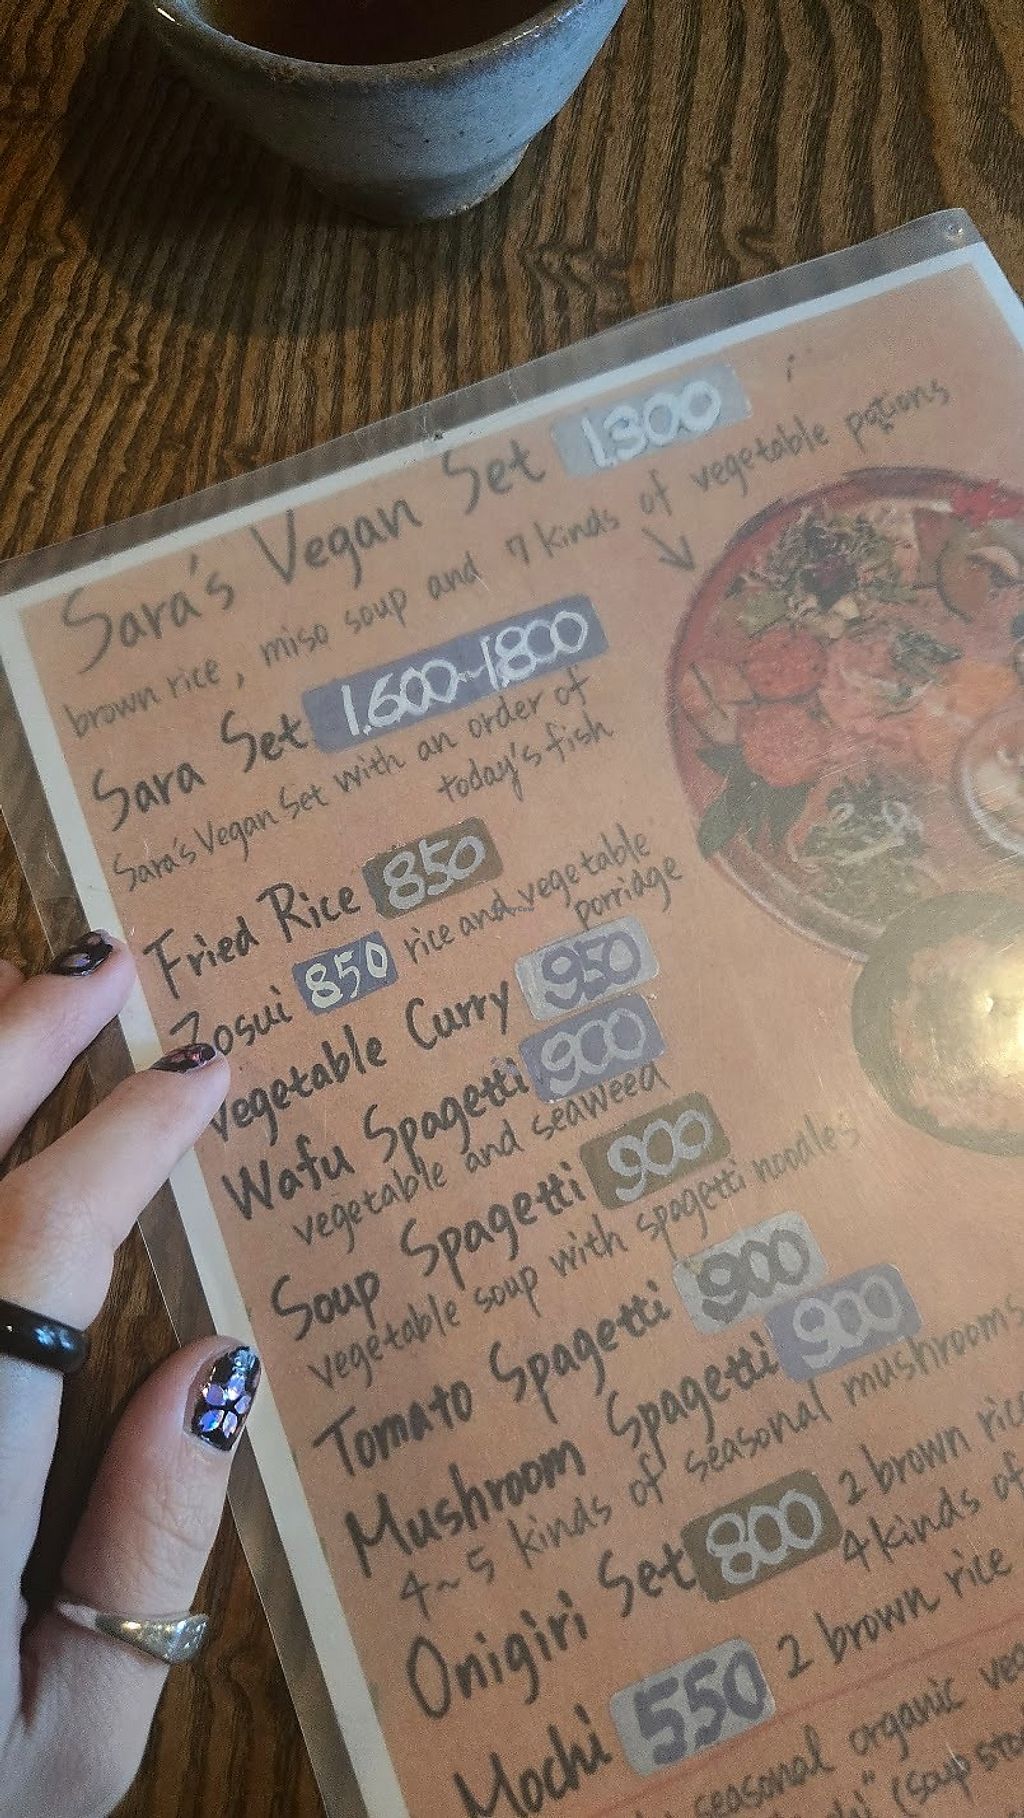 Sara's Vegan Set 1.300
brown rice, miso soup and 7 kinds of vegetable potions
Sara Set 1.600~1.800
Sara's Vegan Set with an order of
today's fish
Fried Rice 850
Zosui 850 rice and vegetable
porridge
Vegetable Curry 950
Wafu Spagetti 900
vegetable and seaweed
Soup Spagetti 900
vegetable soup with spagetti noodles
Tomato Spagetti 900
Mushroom Spagetti 900
4~5 kinds of seasonal mushrooms
Onigiri Set 800 2 brown rice
4 kinds of
Mochi 550 2 brown rice
seasonal organic
(soup